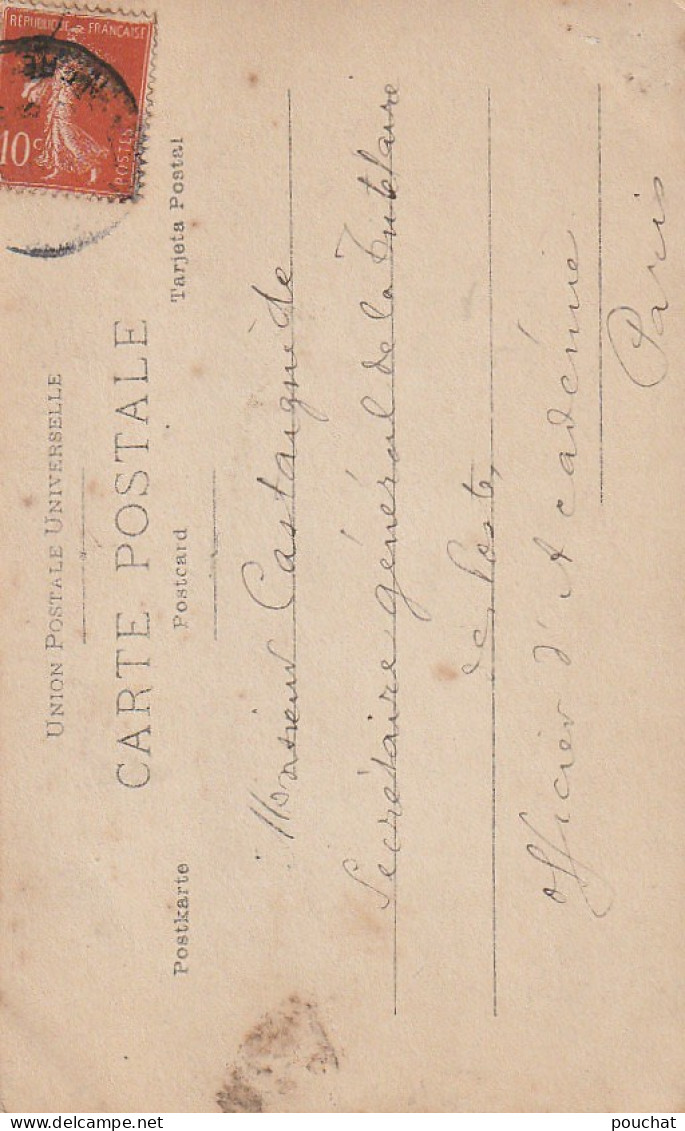 RÉPUBLIQUE FRANÇAISE
10c
POSTES
UNION POSTALE UNIVERSELLE
CARTE POSTALE
Postkarte Postcard Tarjeta Postal
Monsieur Castaignède
Secrétaire général de la Tutélaire
des Postes,
Officier d'Académie
Paris
pouchat